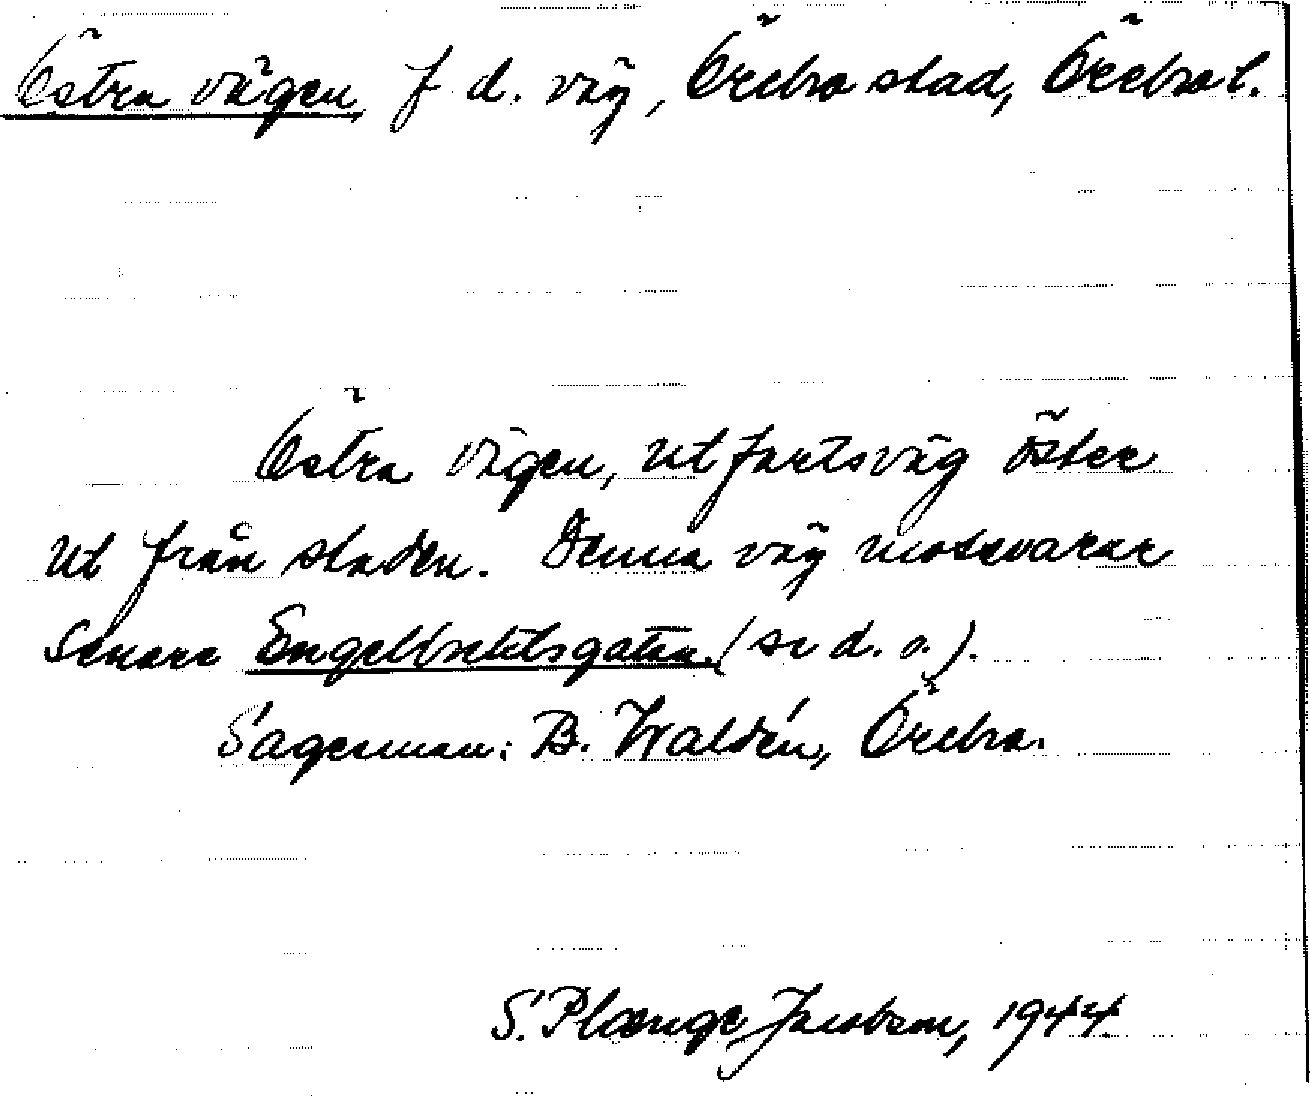 Östra vägen, f d. väg, Örebro stad, Örebro l.
Östra vägen, utfartsväg öster
ut från staden. Denna väg motsvarar
senare Engelbrektsgatan (se d. o.).
Sagesman: B. Waldén, Örebro.
S. Plænge Jacobson, 1944